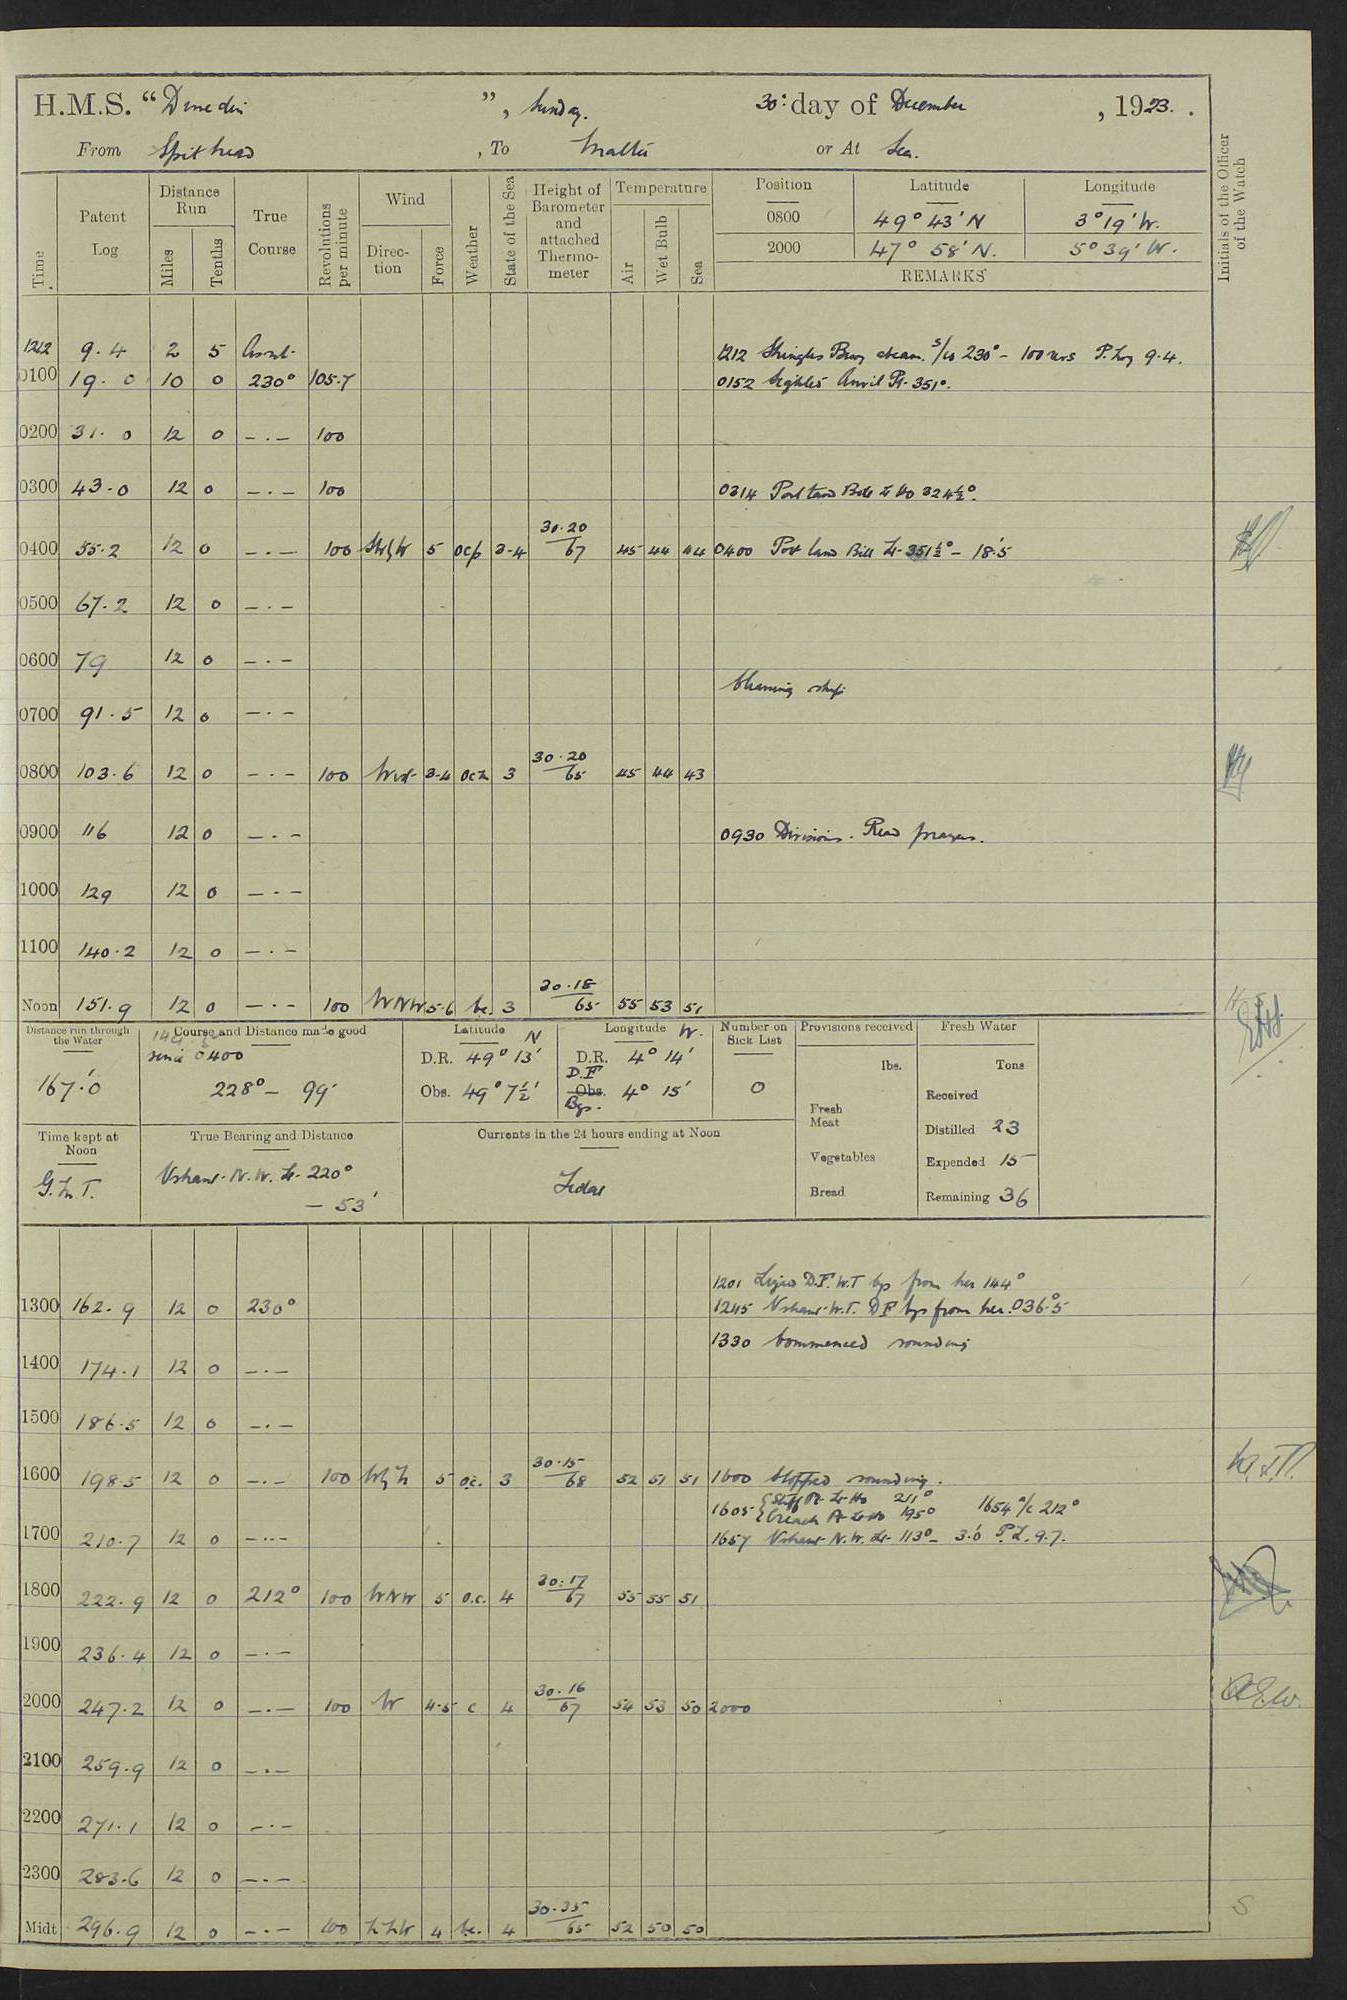 H.M.S. "Dunedin", Sunday. 30th day of December, 1923.
From Spithead, To Malta or At Sea.
Time Patent Log Distance Run Miles Tenths True Course Revolutions per minute Wind Direction Force Weather State of the Sea Height of Barometer and attached Thermometer Temperature Air Wet Bulb Sea Position Latitude Longitude Initials of the Officer of the Watch
0800 49° 43' N 3° 19' W.
2000 47° 58' N. 5° 39' W.
REMARKS
1212 9.4 2 5 1212 Shingles Buoy abeam. S/co 230° – 100 revs P. Log 9.4.
0100 19.0 10 0 230° 105.7 0152 Sighted Anvil Pt. 351°.
0200 31.0 12 0 –.– 100
0300 43.0 12 0 –.– 100 0314 Portland Bill Lt 324½°.
0400 55.2 12 0 –.– 100 5 ocp 3-4 30.20/67 45 44 44 0400 Portland Bill Lt. 351½° – 18'.5
0500 67.2 12 0 –.–
0600 79 12 0 –.–
Cleaning ship
0700 91.5 12 0 –.–
0800 103.6 12 0 –.– 100 West 3-4 3 30.20/65 45 44 43
0900 116 12 0 –.– 0930 Divisions. Read prayers.
1000 129 12 0 –.–
1100 140.2 12 0 –.–
Noon 151.9 12 0 –.– 100 WNW 5-6 bc. 3 30.18/65 55 53 51
Distance run through the Water Course and Distance made good Latitude N Longitude W. Number on Sick List Provisions received Fresh Water
167'.0 since 0400 228° – 99' D.R. 49° 13' D.R. 4° 14' 0 lbs. Tons
Obs. 49° 7½' D.F Obs. Bgs. 4° 15' Received
Fresh Meat Distilled 23
Time kept at Noon True Bearing and Distance Currents in the 24 hours ending at Noon Vegetables Expended 15
G.M.T. Ushant. N.W. Lt. 220° – 53' Tidal Bread Remaining 36
1201 D.F. W.T bg from her 144°
1300 162.9 12 0 230° 1245 Ushant W.T. DF bg from her. 036°.5
1330 Commenced sounding
1400 174.1 12 0 –.–
1500 186.5 12 0 –.–
1600 198.5 12 0 –.– 100 5 o.c. 3 30.15/68 52 51 51 1600 Stopped sounding.
1605 Stiff Pt. Lt Ho 211° 1654 a/c 212°
Creach Pt Lt Ho 195°
1700 210.7 12 0 –.– 1657 Ushant N.W. Lt 113° – 3'.0 P.L. 9.7.
1800 222.9 12 0 212° 100 WNW 5 o.c. 4 30.17/67 55 55 51
1900 236.4 12 0 –.–
2000 247.2 12 0 –.– 100 W 4-5 c 4 30.16/67 54 53 50 2000
2100 259.9 12 0 –.–
2200 271.1 12 0 –.–
2300 283.6 12 0 –.–
Midt 296.9 12 0 –.– 100 4 bc. 4 30.35/65 52 50 50